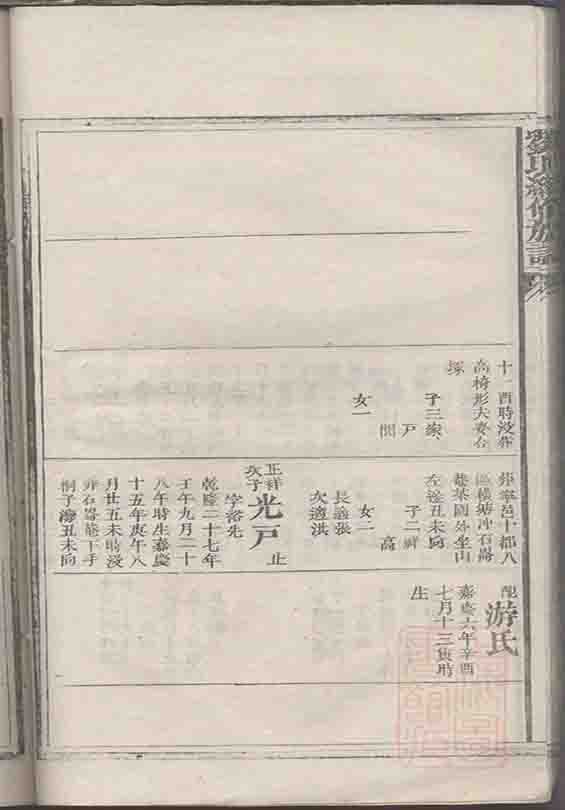 劉氏續修族譜
十一酉時没葬
高椅形夫妻合
塚
子三家
戸
開
女一
葬寧邑十都八
區橫塘冲石崙
菴茶園外坐山
左邊丑未向
子二祥
高
女二
長適張
次適洪
正祥次子光戸止
字浴先
乾隆二十七年
壬午九月二十
八午時生嘉慶
十五年庚午八
月廿五未時没
葬石崙菴下手
桐子灣丑未向
配游氏
嘉慶六年辛酉
七月十三寅時
生